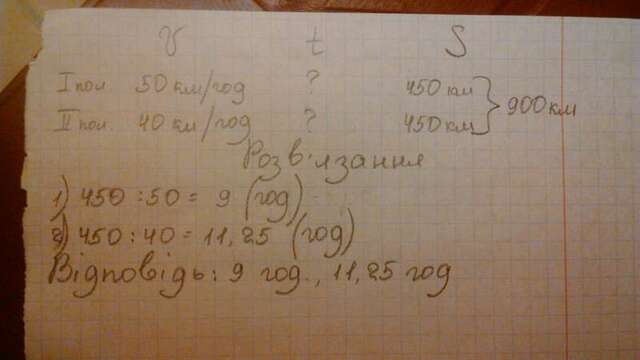 V t S
I пол. 50 км/год ? 450 км
900 км
II пол. 40 км/год ? 450 км
Розв'язання
1) 450 : 50 = 9 (год)
2) 450 : 40 = 11,25 (год)
Відповідь: 9 год., 11,25 год